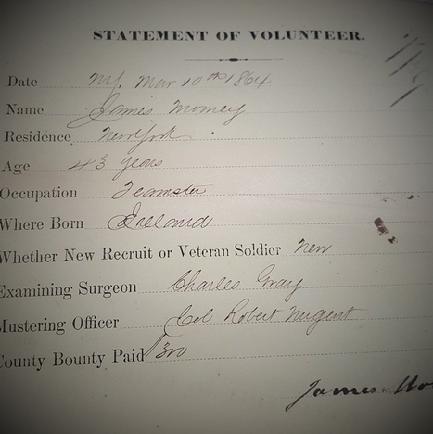 STATEMENT OF VOLUNTEER.
Date N.Y. Mar 10th 1864
Name James
Residence New York
Age 43 years
Occupation Teamster
Where Born
Whether New Recruit or Veteran Soldier New
Examining Surgeon Charles Gray
Mustering Officer Col Robert Nugent
County Bounty Paid 300
James